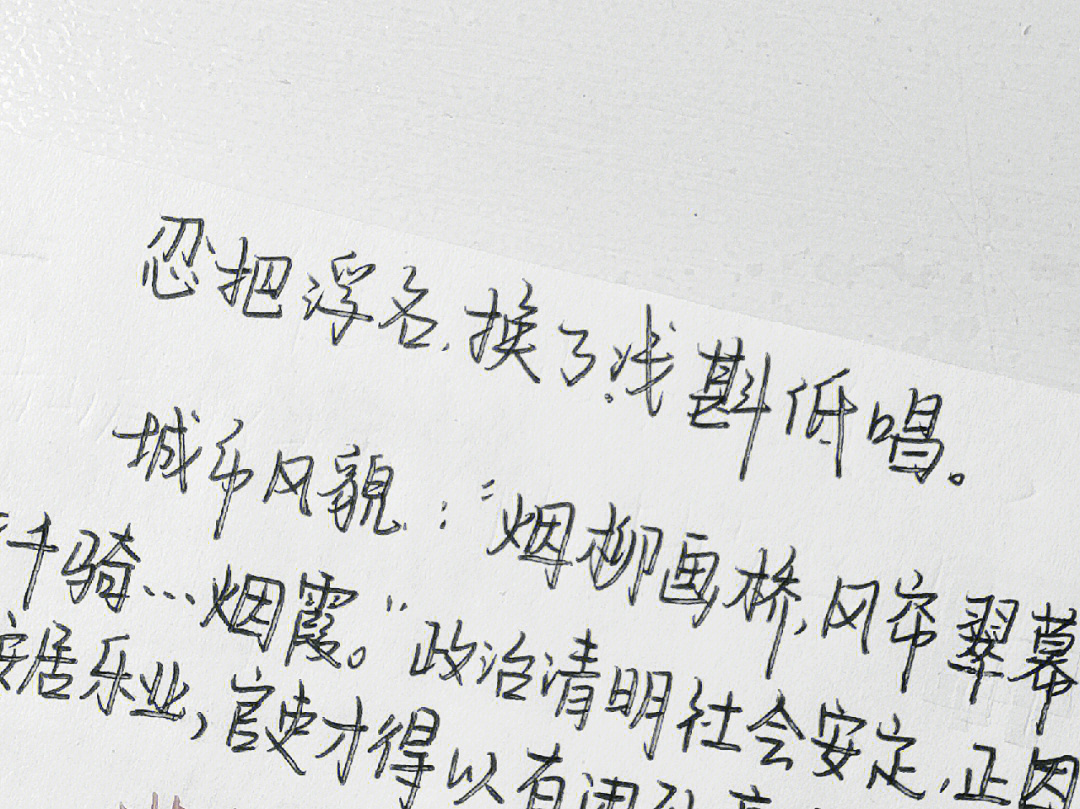 忍把浮名,换了浅斟低唱。
城市风貌:“烟柳画桥,风帘翠幕
“千骑…烟霞。”政治清明社会安定,正因
安居乐业,官吏才得以有闲